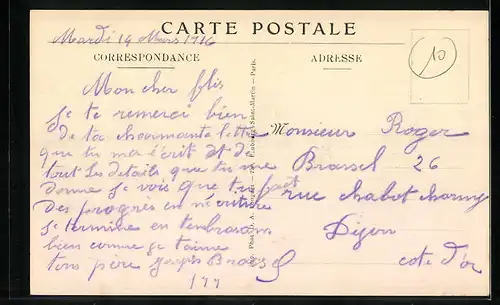 CARTE POSTALE
Mardi 14 Mars 1916
CORRESPONDANCE
ADRESSE
10
Mon cher fils
je te remerci bien
de ta charmante lettre
que tu ma écrit et de
tout les details que tu me
donne je vois que tu fait
des progrès en écriture
je termine en tembrassan
bien comme je taime
ton père Brassel
177
Monsieur Roger
Brassel 26
rue chabot charny
Dijon
cote d'or
Paris.